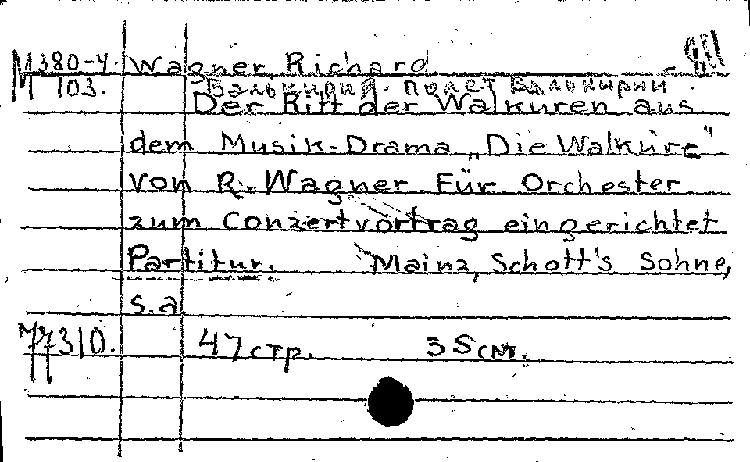 М380-4 Wagner Richard
М 103. Валькирия. Полет Валькирий.
Der Ritt der Walkuren aus
dem Musik-Drama „Die Walküre"
von R. Wagner Für Orchester
zum Conzertvortrag eingerichtet
Partitur. Mainz, Schott's Sohne,
s.a
47 стр. 35 см.